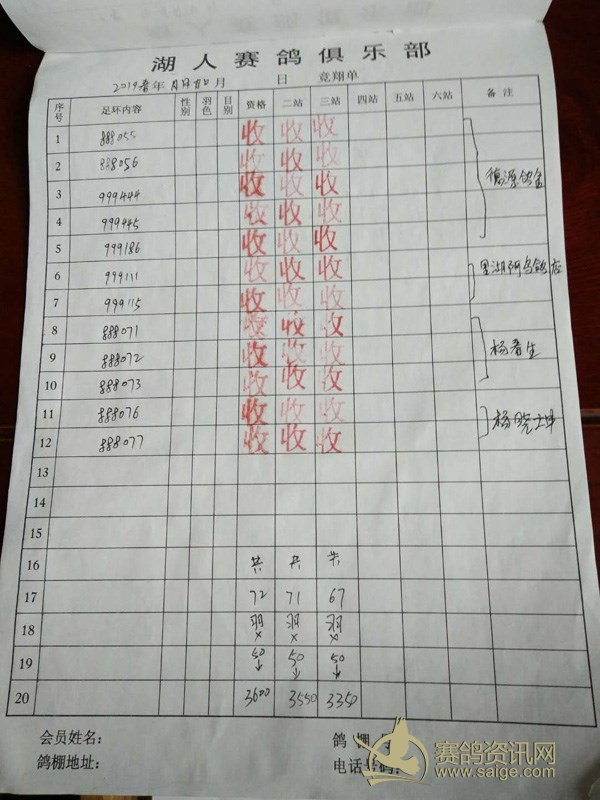 湖人赛鸽俱乐部
2019春年 月 日 竞翔单
序号 足环内容 性别 羽色 目别 资格 二站 三站 四站 五站 六站 备注
1 888055 收 收 收
2 888056 收 收 收
3 999444 收 收 收
4 999445 收 收 收
5 999186 收 收 收
6 999111 收 收 收
7 999115 收 收 收
8 888071 收 收 收
9 888072 收 收 收 杨春生
10 888073 收 收 收
11 888076 收 收 收
12 888077 收 收 收
13
14
15
16 共 共 共
17 72 71 67
18 羽 羽 羽
× × ×
19 50 50 50
20 3600 3550 3350
会员姓名： 鸽棚
鸽棚地址： 电话号码：
赛鸽资讯网
www.saige.com